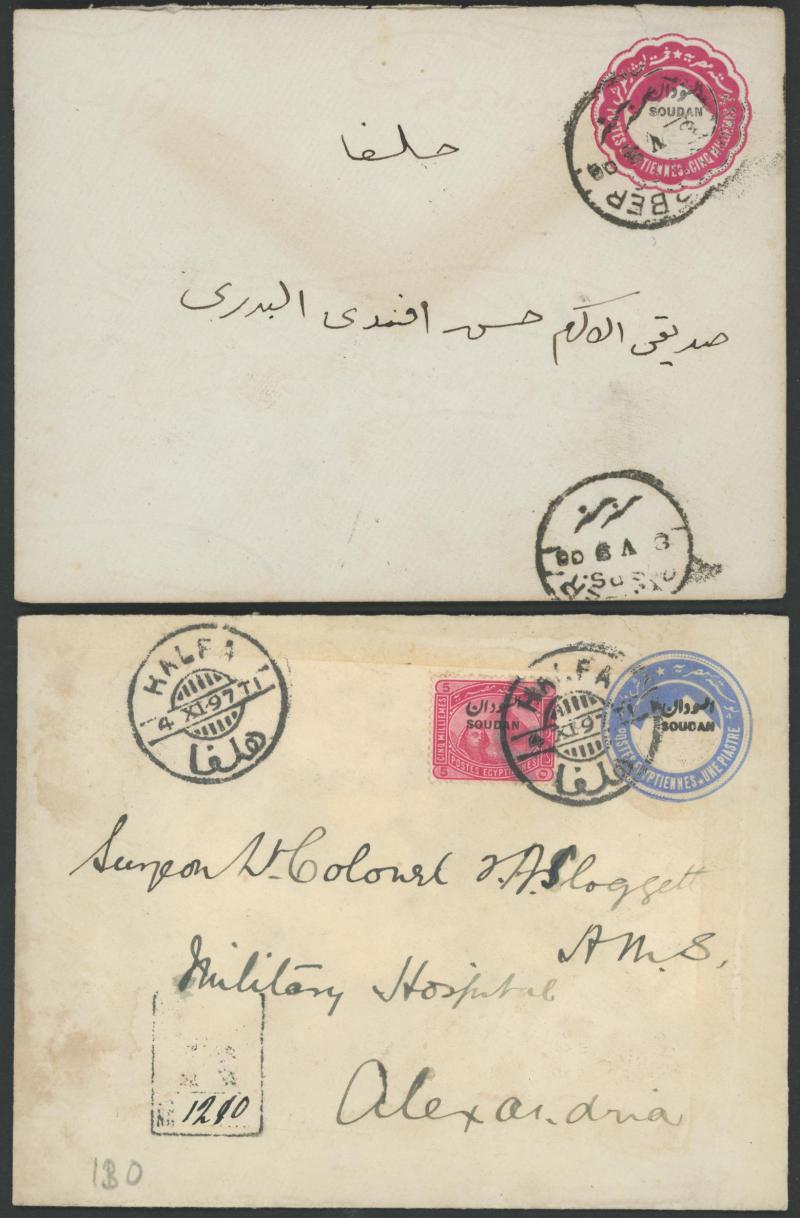 السودان
SOUDAN
POSTES EGYPTIENNES CINQ MILLIEMES
BER
حلفا
صديقى الاكرم حسن افندى البدرى
HALFA
4 XI 97 T1
هلفا
5
السودان
SOUDAN
CINQ MILLIEMES
POSTES EGYPTIENNES
5
HALFA
4 XI 97 T1
هلفا
بوستة مصرية
السودان
SOUDAN
POSTES EGYPTIENNES UNE PIASTRE
Surgeon Lt. Colonel A. Sloggett
A.M.S.
Military Hospital
Alexandria
1210
1B0